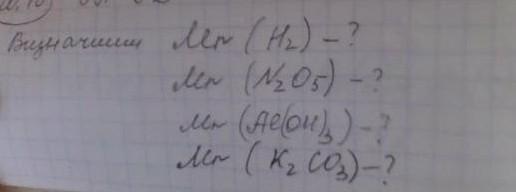 Визначити Mr (H₂) – ?
Mr (N₂O₅) – ?
Mr (Al(OH)₃) – ?
Mr (K₂CO₃) – ?